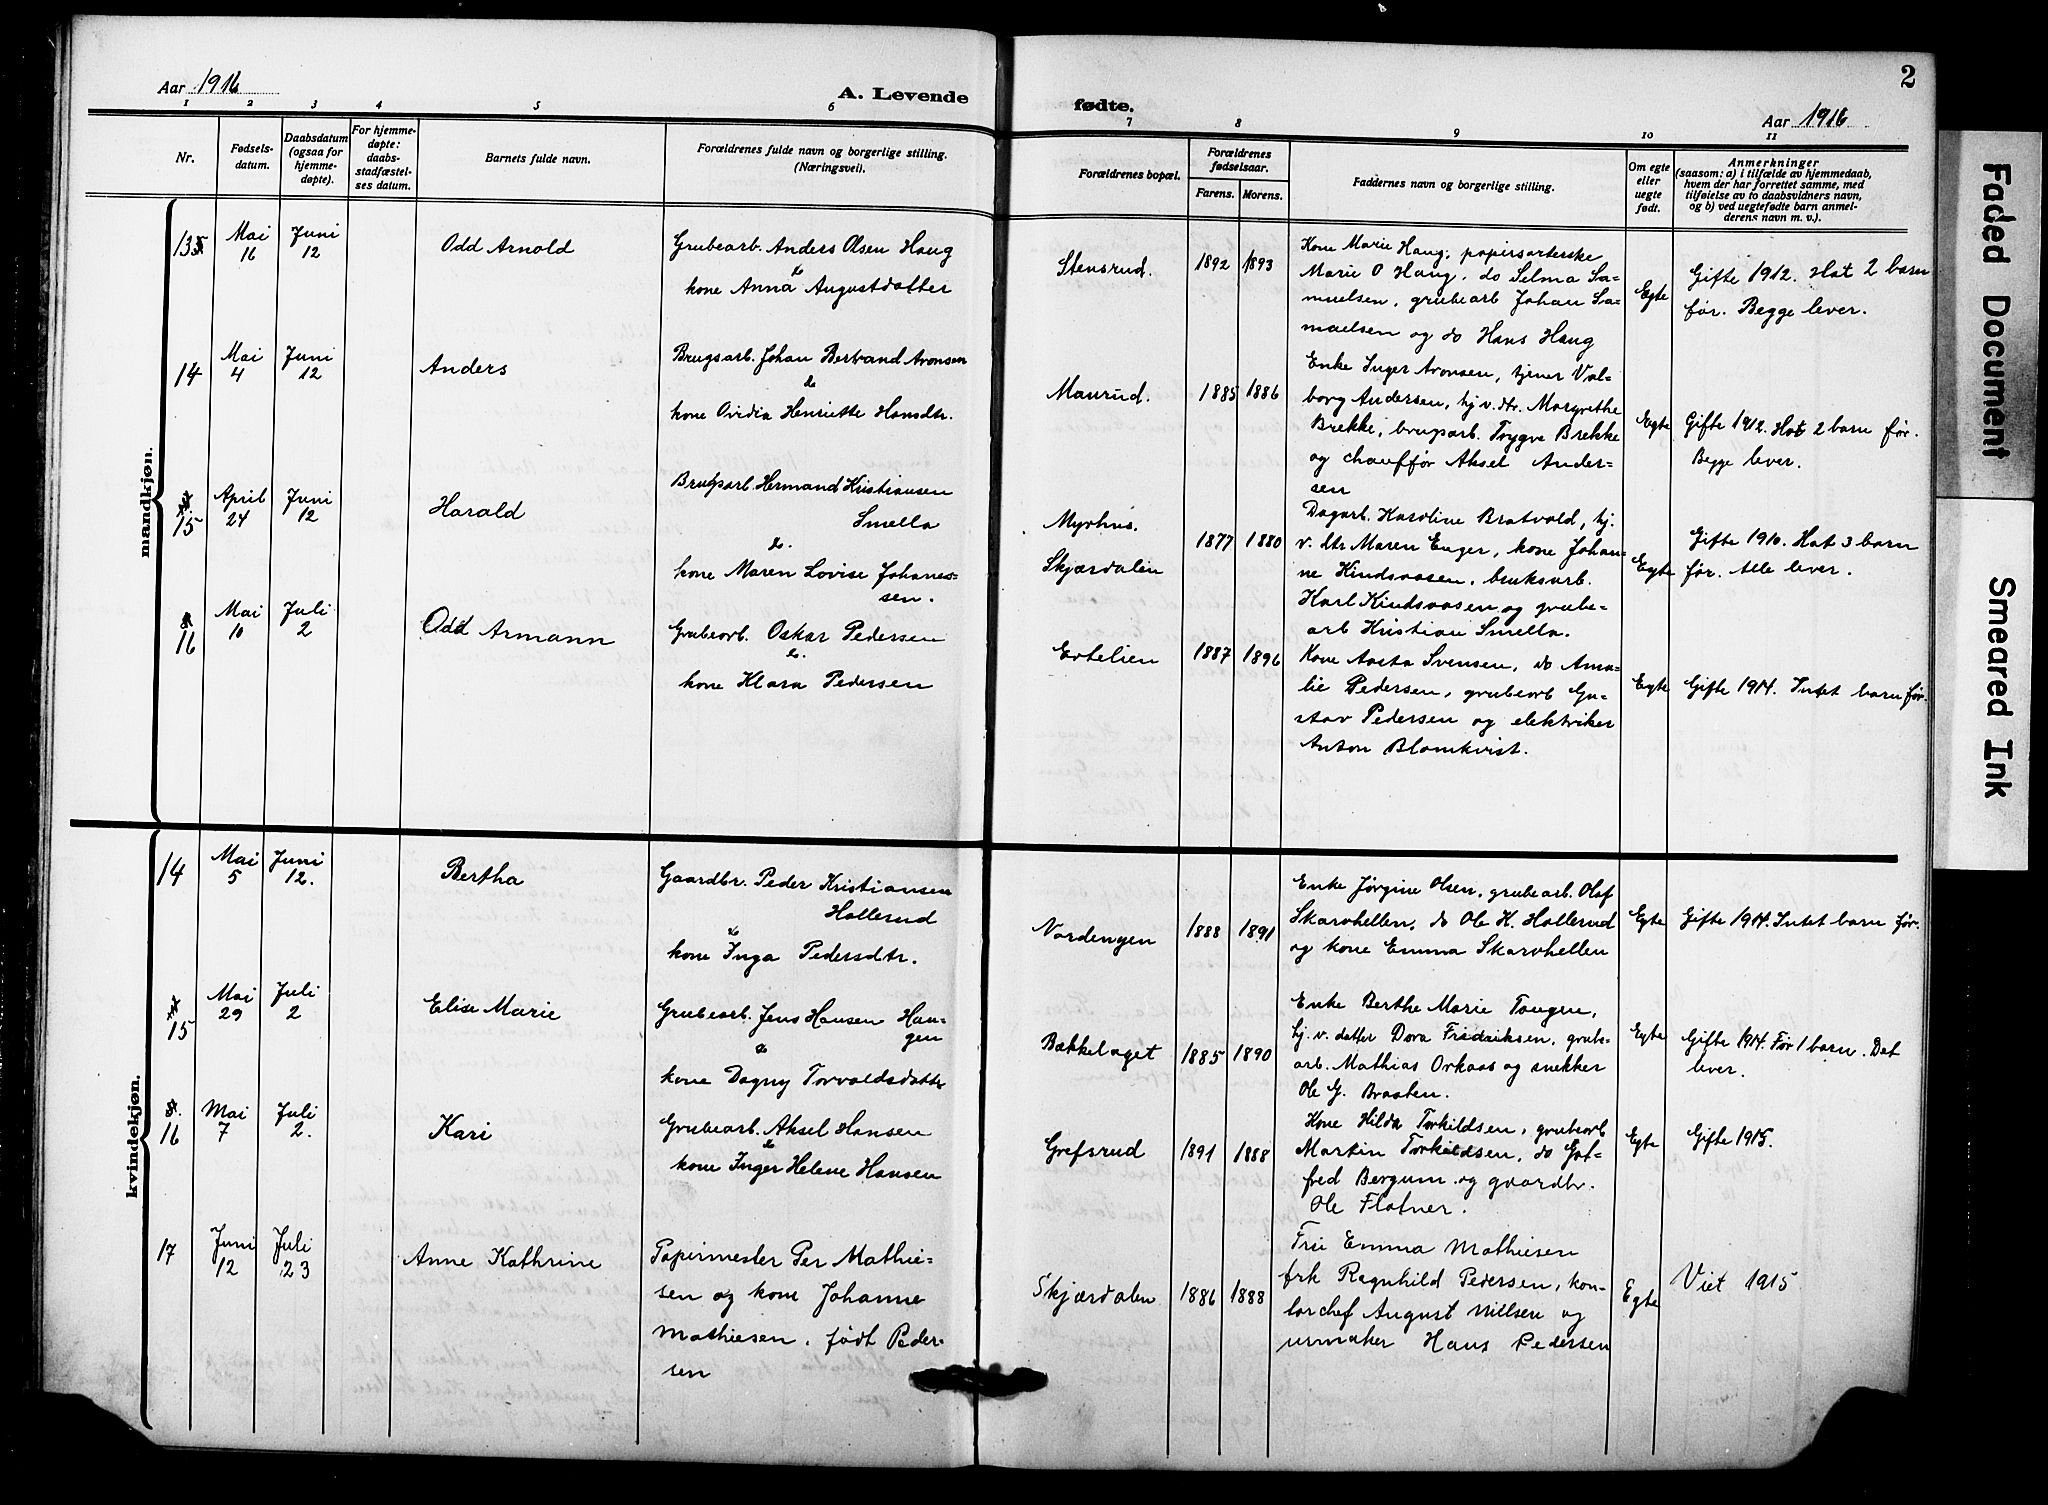 Aar 1916
A. Levende
fødte.
Aar 1916
2
1 2 3 4 5 6 7 8 9 10 11
Nr.
Fødsels-
datum.
Daabsdatum
(ogsaa for
hjemme-
døpte).
For hjemme-
døpte:
daabs-
stadfæstel-
ses datum.
Barnets fulde navn.
Forældrenes fulde navn og borgerlige stilling.
(Næringsvei).
Forældrenes bopæl.
Forældrenes
fødselsaar.
Farens. Morens.
Faddernes navn og borgerlige stilling.
Om egte
eller
uegte
født.
Anmerkninger
(saasom: a) i tilfælde av hjemmedaab,
hvem der har forrettet samme, med
tilføielse av to daabsvidners navn,
og b) ved uegtefødte barn anmel-
derens navn m. v.).
mandkjøn.
13
Mai
16
Juni
12
Odd Arnold
Grubearb. Anders Olsen Haug
&
kone Anna Augustdatter
Stensrud.
1892 1893
Kone Marie Haug, papirsorterske
Marie O Haug, do Selma Sa-
muelsen, grubearb Johan Sa-
muelsen og do Hans Haug
Egte
Gifte 1912. Hat 2 barn
før. Begge lever.
14
Mai
4
Juni
12
Anders
Brugsarb. Johan Bertrand Aronsen
&
kone Ovidia Henriette Hansdtr.
Maurud.
1885 1886
Enke Inger Aronsen, tjener Val-
borg Andersen, hj v. dtr. Margrethe
Brekke, brugsarb. Trygve Brekke
og chauffør Aksel Ander-
sen
Egte
Gifte 1912. Hat 2 barn før.
Begge lever.
15
April
24
Juni
12
Harald
Brugsarb. Hermand Kristiansen
Smella
&.
kone Maren Lovise Johanes-
sen.
Myrhus.
Skjærdalen
1877 1880
Dagarb. Karoline Bratvold, hj.
v. dtr Maren Enger, kone Johan-
ne Kindsaasen, bruksarb.
Karl Kindsaasen og grube-
arb Kristian Smella.
Egte
Gifte 1910. Hat 3 barn
før. Alle lever.
16
Mai
10
Juli
2
Odd Armann
Grubearb. Oskar Pedersen
&.
kone Klara Pedersen
Ertelien
1887 1896
Kone Aasta Svensen, do Ama-
lie Pedersen, grubearb Gu-
stav Pedersen og elektriker
Anton Blomkvist.
Egte
Gifte 1914. Intet barn før.
kvindekjøn.
14
Mai
5
Juni
12.
Bertha
Gaardbr. Peder Kristiansen
Hollerud
&
kone Inga Pedersdtr.
Nordengen
1888 1891
Enke Jørgine Olsen, grubearb. Olaf
Skarvhellen, do Ole K. Hollerud
og kone Emma Skarvhellen
Egte
Gifte 1914. Intet barn før.
15
Mai
29
Juli
2
Elise Marie
Grubearb. Jens Hansen Hau-
gen
&
kone Dagny Torvaldsdatter
Bækkelaget
1885 1890
Enke Berthe Marie Tangen,
hj. v. datter Dora Fredriksen, grub-
arb. Mathias Orkaas og snekker
Ole G. Braaten.
Egte
Gifte 1914. Før 1 barn. Det
lever.
16
Mai
7
Juli
2.
Kari
Grubearb. Aksel Hansen
&
kone Inger Helene Hansen
Grefsrud
1891 1888
Kone Hilda Torkildsen, grubearb
Martin Torkildsen, do Got-
fred Bergum og gaardbr.
Ole Flatner.
Egte
Gifte 1915.
17
Juni
12
Juli
23
Anne Kathrine
Papirmester Per Mathie-
sen og kone Johanne
Mathiesen, født Peder-
sen
Skjærdalen
1886 1888
Fru Emma Mathiesen
frk Ragnhild Pedersen, kon-
torchef August Nillsen og
urmaker Hans Pedersen
Egte
Viet 1915
Faded Document
Smeared Ink